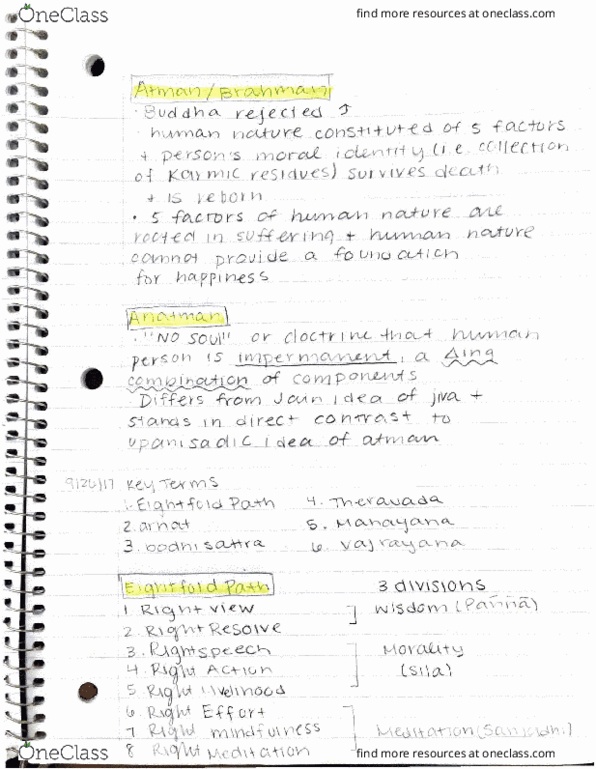 OneClass find more resources at oneclass.com
Atman/Brahman
· Buddha rejected ↑
· human nature constituted of 5 factors
+ person's moral identity (i.e. collection
of karmic residues) survives death
+ is reborn
· 5 factors of human nature are
rooted in suffering + human nature
cannot provide a foundation
for happiness
Anatman
· "NO SOUL" or doctrine that human
person is impermanent, a Δing
combination of components
Differs from Jain idea of jiva +
stands in direct contrast to
upanisadic idea of atman
9/26/17 Key Terms
1. Eightfold Path 4. Theravada
2. arhat 5. Mahayana
3. bodhisattva 6. Vajrayana
Eightfold Path 3 divisions
1 Right view wisdom (Pañña)
2. Right Resolve
3. Right speech Morality
4. Right Action (sila)
5 Right livelihood
6. Right Effort
7 Right mindfulness Meditation
8 Right Meditation
OneClass find more resources at oneclass.com